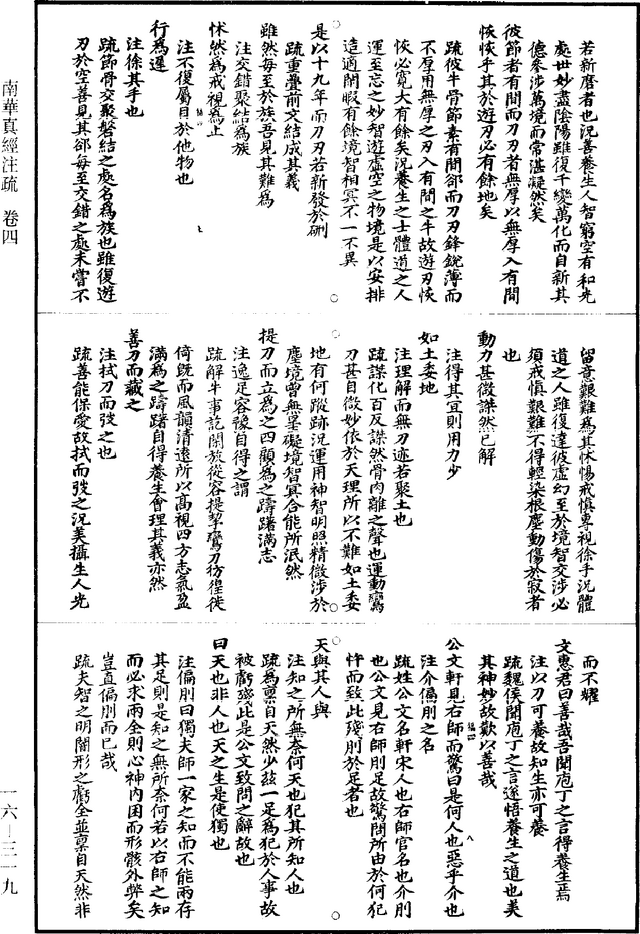 若新磨者也況善養生人智窮空有和光
處世妙盡陰陽雖復千變萬化而自新其
德參涉萬境而常湛凝然矣
彼節者有間而刀刃者無厚以無厚入有間
恢恢乎其於遊刃必有餘地矣
疏彼牛骨節素有間郤而刀刃鋒銳薄而
不厚用無厚之刃入有間之牛故遊刃恢
恢必寬大有餘矣況養生之士體道之人
運至忘之妙智遊虛空之物境是以安排
造適閒暇有餘境智相冥不一不異
是以十九年而刀刃若新發於硎
疏重疊前文結成其義
雖然每至於族吾見其難為
注交錯聚結為族
怵然為戒視為止
注不復屬目於他物也
行為遲
注徐其手也
疏節骨交聚磐結之處名為族也雖復遊
刃於空善見其郤每至交錯之處未嘗不
留意艱難為其怵惕戒慎專視徐手況體
道之人雖復達彼虛幻至於境智交涉必
須戒慎艱難不得輕染根塵動傷於寂者
也
動刀甚微謋然已解
注得其宜則用力少
如土委地
注理解而無刀迹若聚土也
疏謋化百反謋然骨肉離之聲也運動鸞
刀甚自微妙依於天理所以不難如土委
地有何蹤跡況運用神智明照精微涉於
塵境曾無罣礙境智冥合能所泯然
提刀而立為之四顧為之躊躇滿志
注逸足容豫自得之謂
疏解牛事訖閑放從容提挈鸞刀彷徨徙
倚既而風韻清遠所以高視四方志氣盈
滿為之躊躇自得養生會理其義亦然
善刀而藏之
注拭刀而弢之也
疏善能保愛故拭而弢之況美攝生人光
而不耀
文惠君曰善哉吾聞庖丁之言得養生焉
注以刀可養故知生亦可養
疏魏侯聞庖丁之言遂悟養生之道也美
其神妙故歎以善哉
公文軒見右師而驚曰是何人也惡乎介也
注介偏刖之名
疏姓公文名軒宋人也右師官名也介刖
也公文見右師刖足故驚問所由於何犯
忤而致此殘刖於足者也
天與其人與
注知之所無奈何天也犯其所知人也
疏為稟自天然少茲一足為犯於人事故
被虧殘此是公文致問之辭故也
曰天也非人也天之生是使獨也
注偏刖曰獨夫師一家之知而不能兩存
其足則是知之無所奈何若以右師之知
而必求兩全則心神內困而形骸外弊矣
豈直偏刖而已哉
疏夫智之明闇形之虧全並稟自天然非
南華真經注疏 卷四
一六—三一九